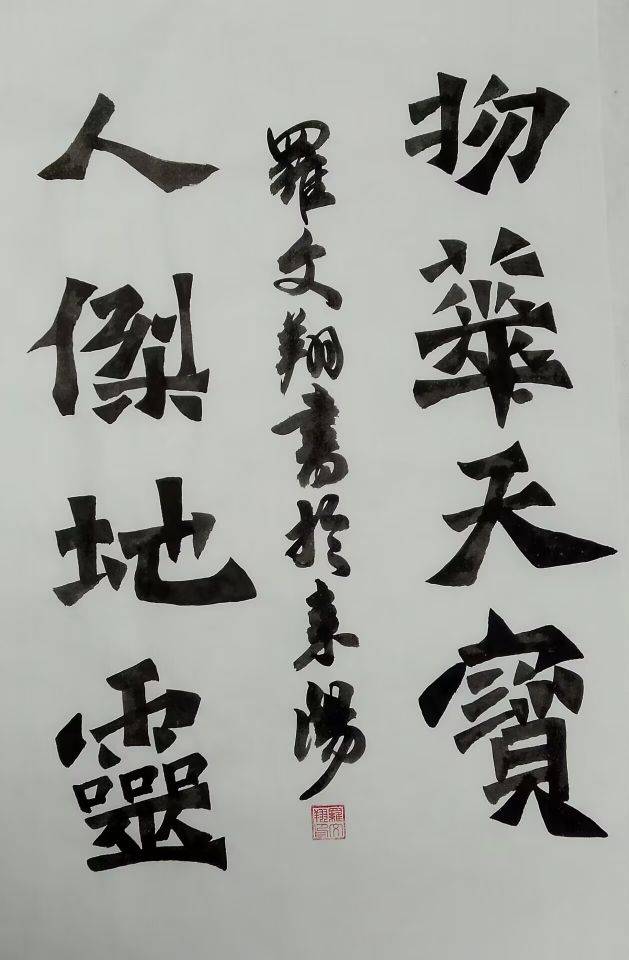 物華天寶
人傑地靈
羅文翔書於耒陽
羅文翔印